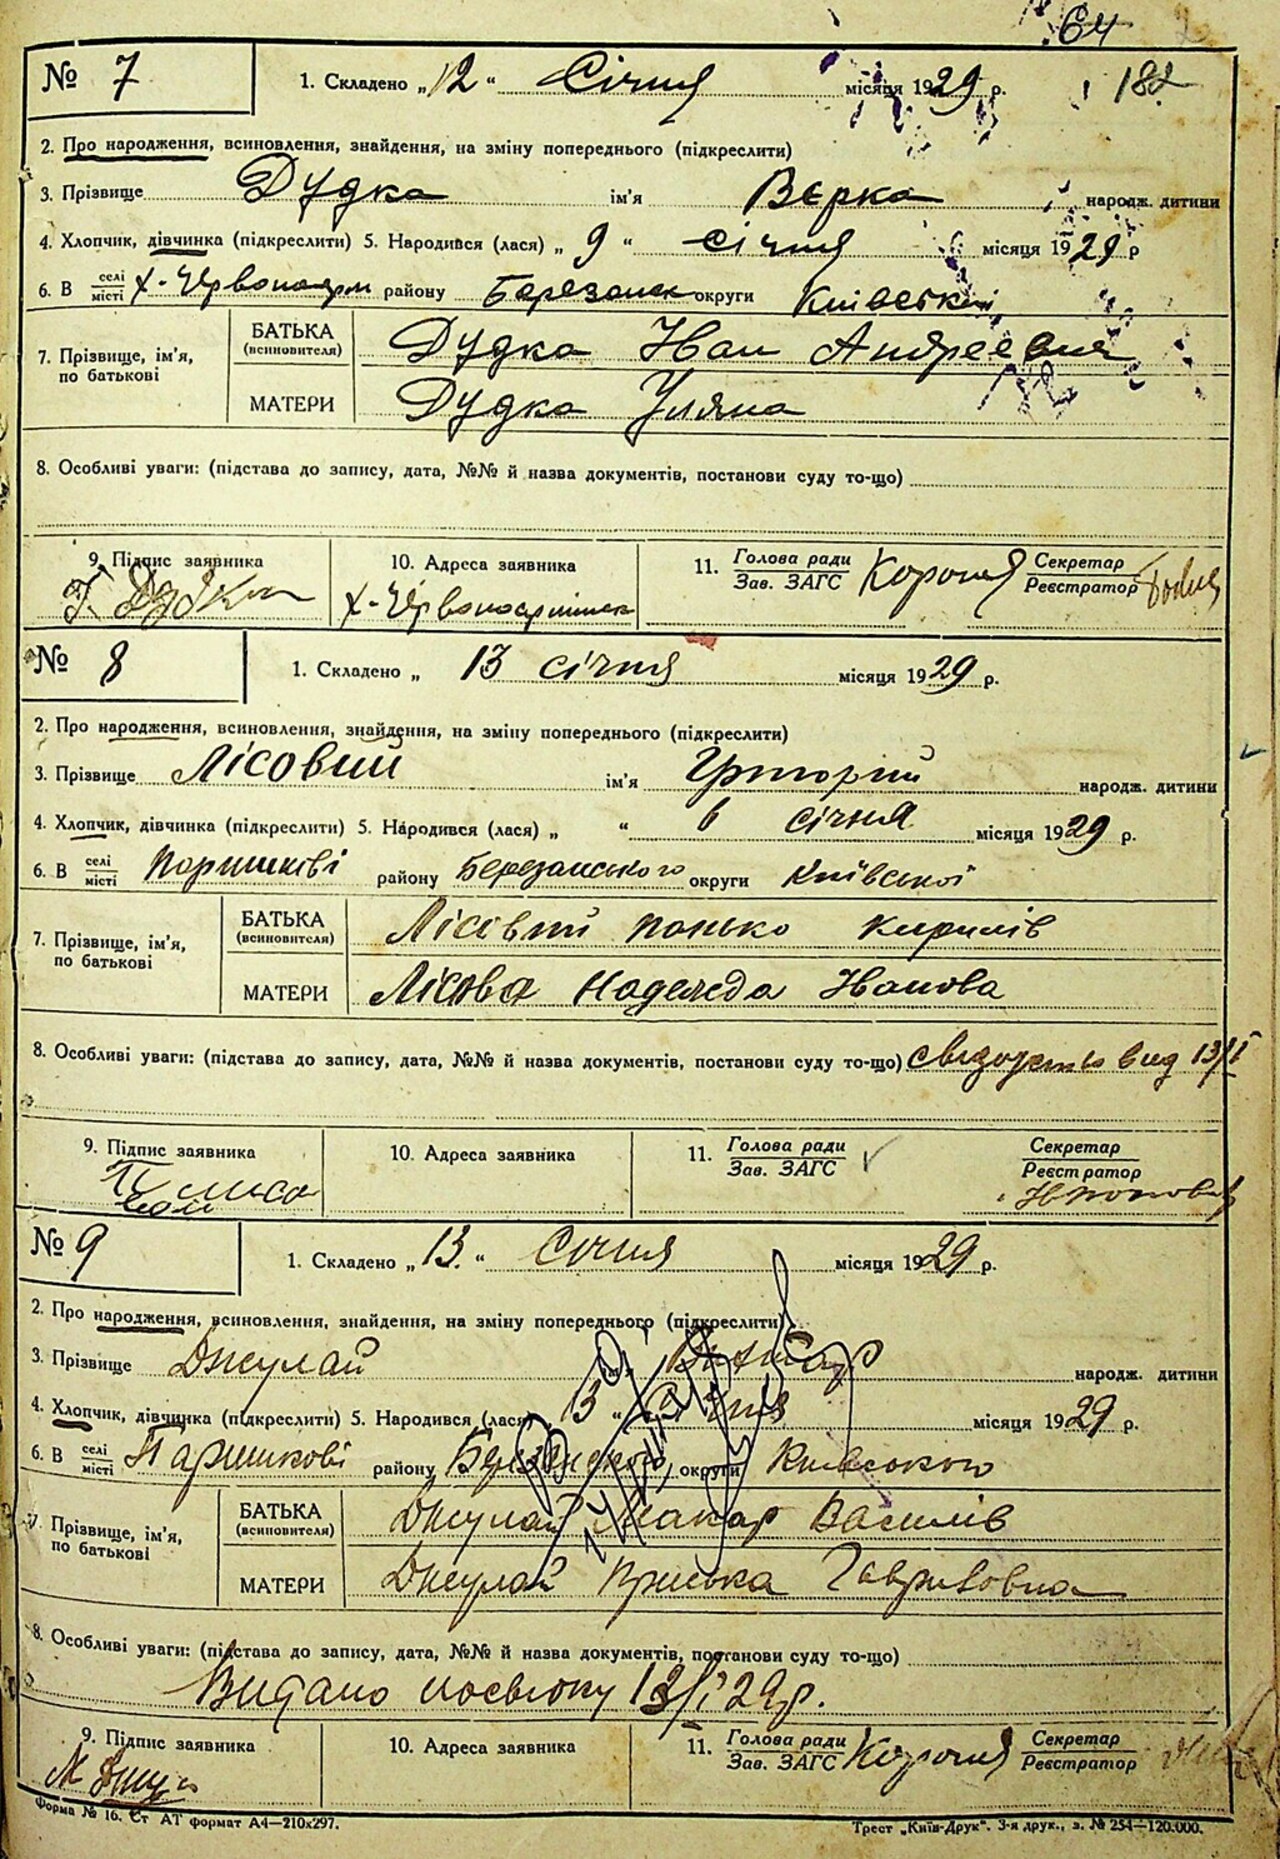 64
№ 7 1. Складено „12“ Січня місяця 1929 р. 182
2. Про народження, всиновлення, знайдення, на зміну попереднього (підкреслити)
3. Прізвище Дудка ім'я Вєрка народж. дитини
4. Хлопчик, дівчинка (підкреслити) 5. Народився (лася) „9“ січня місяця 1929 р
6. В селі місті х-Червоноарм району Березанск округи Київськії
7. Прізвище, ім'я, по батькові БАТЬКА (всиновителя) Дудка Иван Андреевич
МАТЕРИ Дудка Уляна
8. Особливі уваги: (підстава до запису, дата, №№ й назва документів, постанови суду то-що)
9. Підпис заявника 10. Адреса заявника 11. Голова ради Зав. ЗАГС Секретар Реєстратор
х-Червоноармійск
№ 8 1. Складено „ 13 січня місяця 1929 р.
2. Про народження, всиновлення, знайдення, на зміну попереднього (підкреслити)
3. Прізвище Лісовий ім'я Григорій народж. дитини
4. Хлопчик, дівчинка (підкреслити) 5. Народився (лася) „ “ 6 січня місяця 1929 р.
6. В селі місті Паришкові району Березанського округи Київської
7. Прізвище, ім'я, по батькові БАТЬКА (всиновителя) Лісовий Панько Кирилів
МАТЕРИ Лісова Надежда Іванова
8. Особливі уваги: (підстава до запису, дата, №№ й назва документів, постанови суду то-що) вид 13/I
9. Підпис заявника 10. Адреса заявника 11. Голова ради Зав. ЗАГС Секретар Реєстратор
№ 9 1. Складено „13.“ Січня місяця 1929 р.
2. Про народження, всиновлення, знайдення, на зміну попереднього (підкреслити)
3. Прізвище Джулай народж. дитини
4. Хлопчик, дівчинка (підкреслити) 5. Народився (лася) „ 13 “ Січня місяця 1929 р.
6. В селі місті Паришкові району Березанського округи Київського
7. Прізвище, ім'я, по батькові БАТЬКА (всиновителя) Джулай Макар Василів
МАТЕРИ Джулай Приська Гавриловна
8. Особливі уваги: (підстава до запису, дата, №№ й назва документів, постанови суду то-що)
Видано посвідку 13/I 29 р.
9. Підпис заявника 10. Адреса заявника 11. Голова ради Зав. ЗАГС Секретар Реєстратор
Форма № 16. Ст АТ формат А4—210х297. Трест „Київ-Друк“. 3-я друк., з. № 254—120.000.